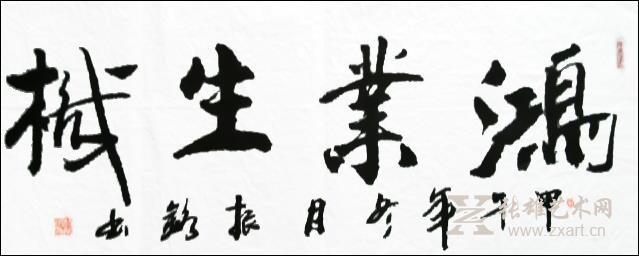 鴻業生機
甲午年冬月振銘書
张雄艺术网
www.zxart.cn